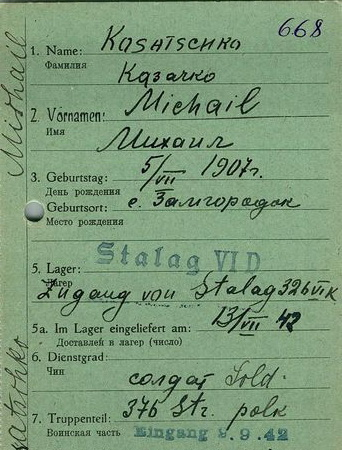 668
1. Name: Kasatschko
Фамилия
Казачко
2. Vornamen: Michail
Имя
Михаил
3. Geburtstag: 5/VII 1907г.
День рождения
Geburtsort: с. Замгородок
Место рождения
Stalag VI D
5. Lager:
Лагер
Zugang von Stalag 326 VI K
5a. Im Lager eingeliefert am: 13/VII 42
Доставлен в лагер (число)
6. Dienstgrad:
Чин
солдат Sold.
7. Truppenteil: 376 Str. polk
Воинская часть
Eingang 9.9.42
Michail